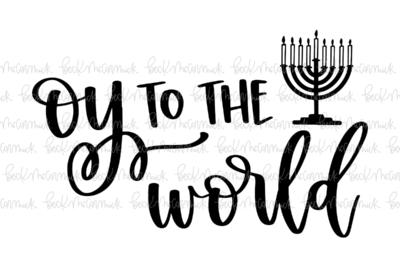 OY TO THE
world